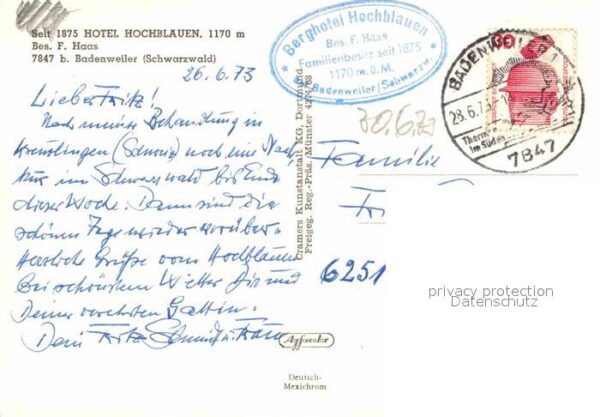 Seit 1875 HOTEL HOCHBLAUEN, 1170 m
Bes. F. Haas
7847 b. Badenweiler (Schwarzwald)
26. 6. 73
Lieber Fritz!
Nach meiner Behandlung in
Kreuzlingen (Schweiz) noch eine Nach-
kur im Schwarzwald bis Ende
dieser Woche. Dann sind die
schönen Tage wieder vorüber.
Herrliche Grüße vom Hochblauen
bei schönstem Wetter Dir und
Deiner verehrten Gattin.
Dein Fritz
Berghotel Hochblauen
Bes. F. Haas
Familienbesitz seit 1875
1170 m ü. M.
Badenweiler/Schwarzw.
30.6.73
60
BADENWEILER 1
28.6.73
Therm
im Süden
7847
Familie
Fri
6251
Cramers Kunstanstalt KG, Dortmund
Freigeg. Reg.-Präs. Münster
Agfacolor
Deutsch-
Mexichrom
privacy protection
Datenschutz